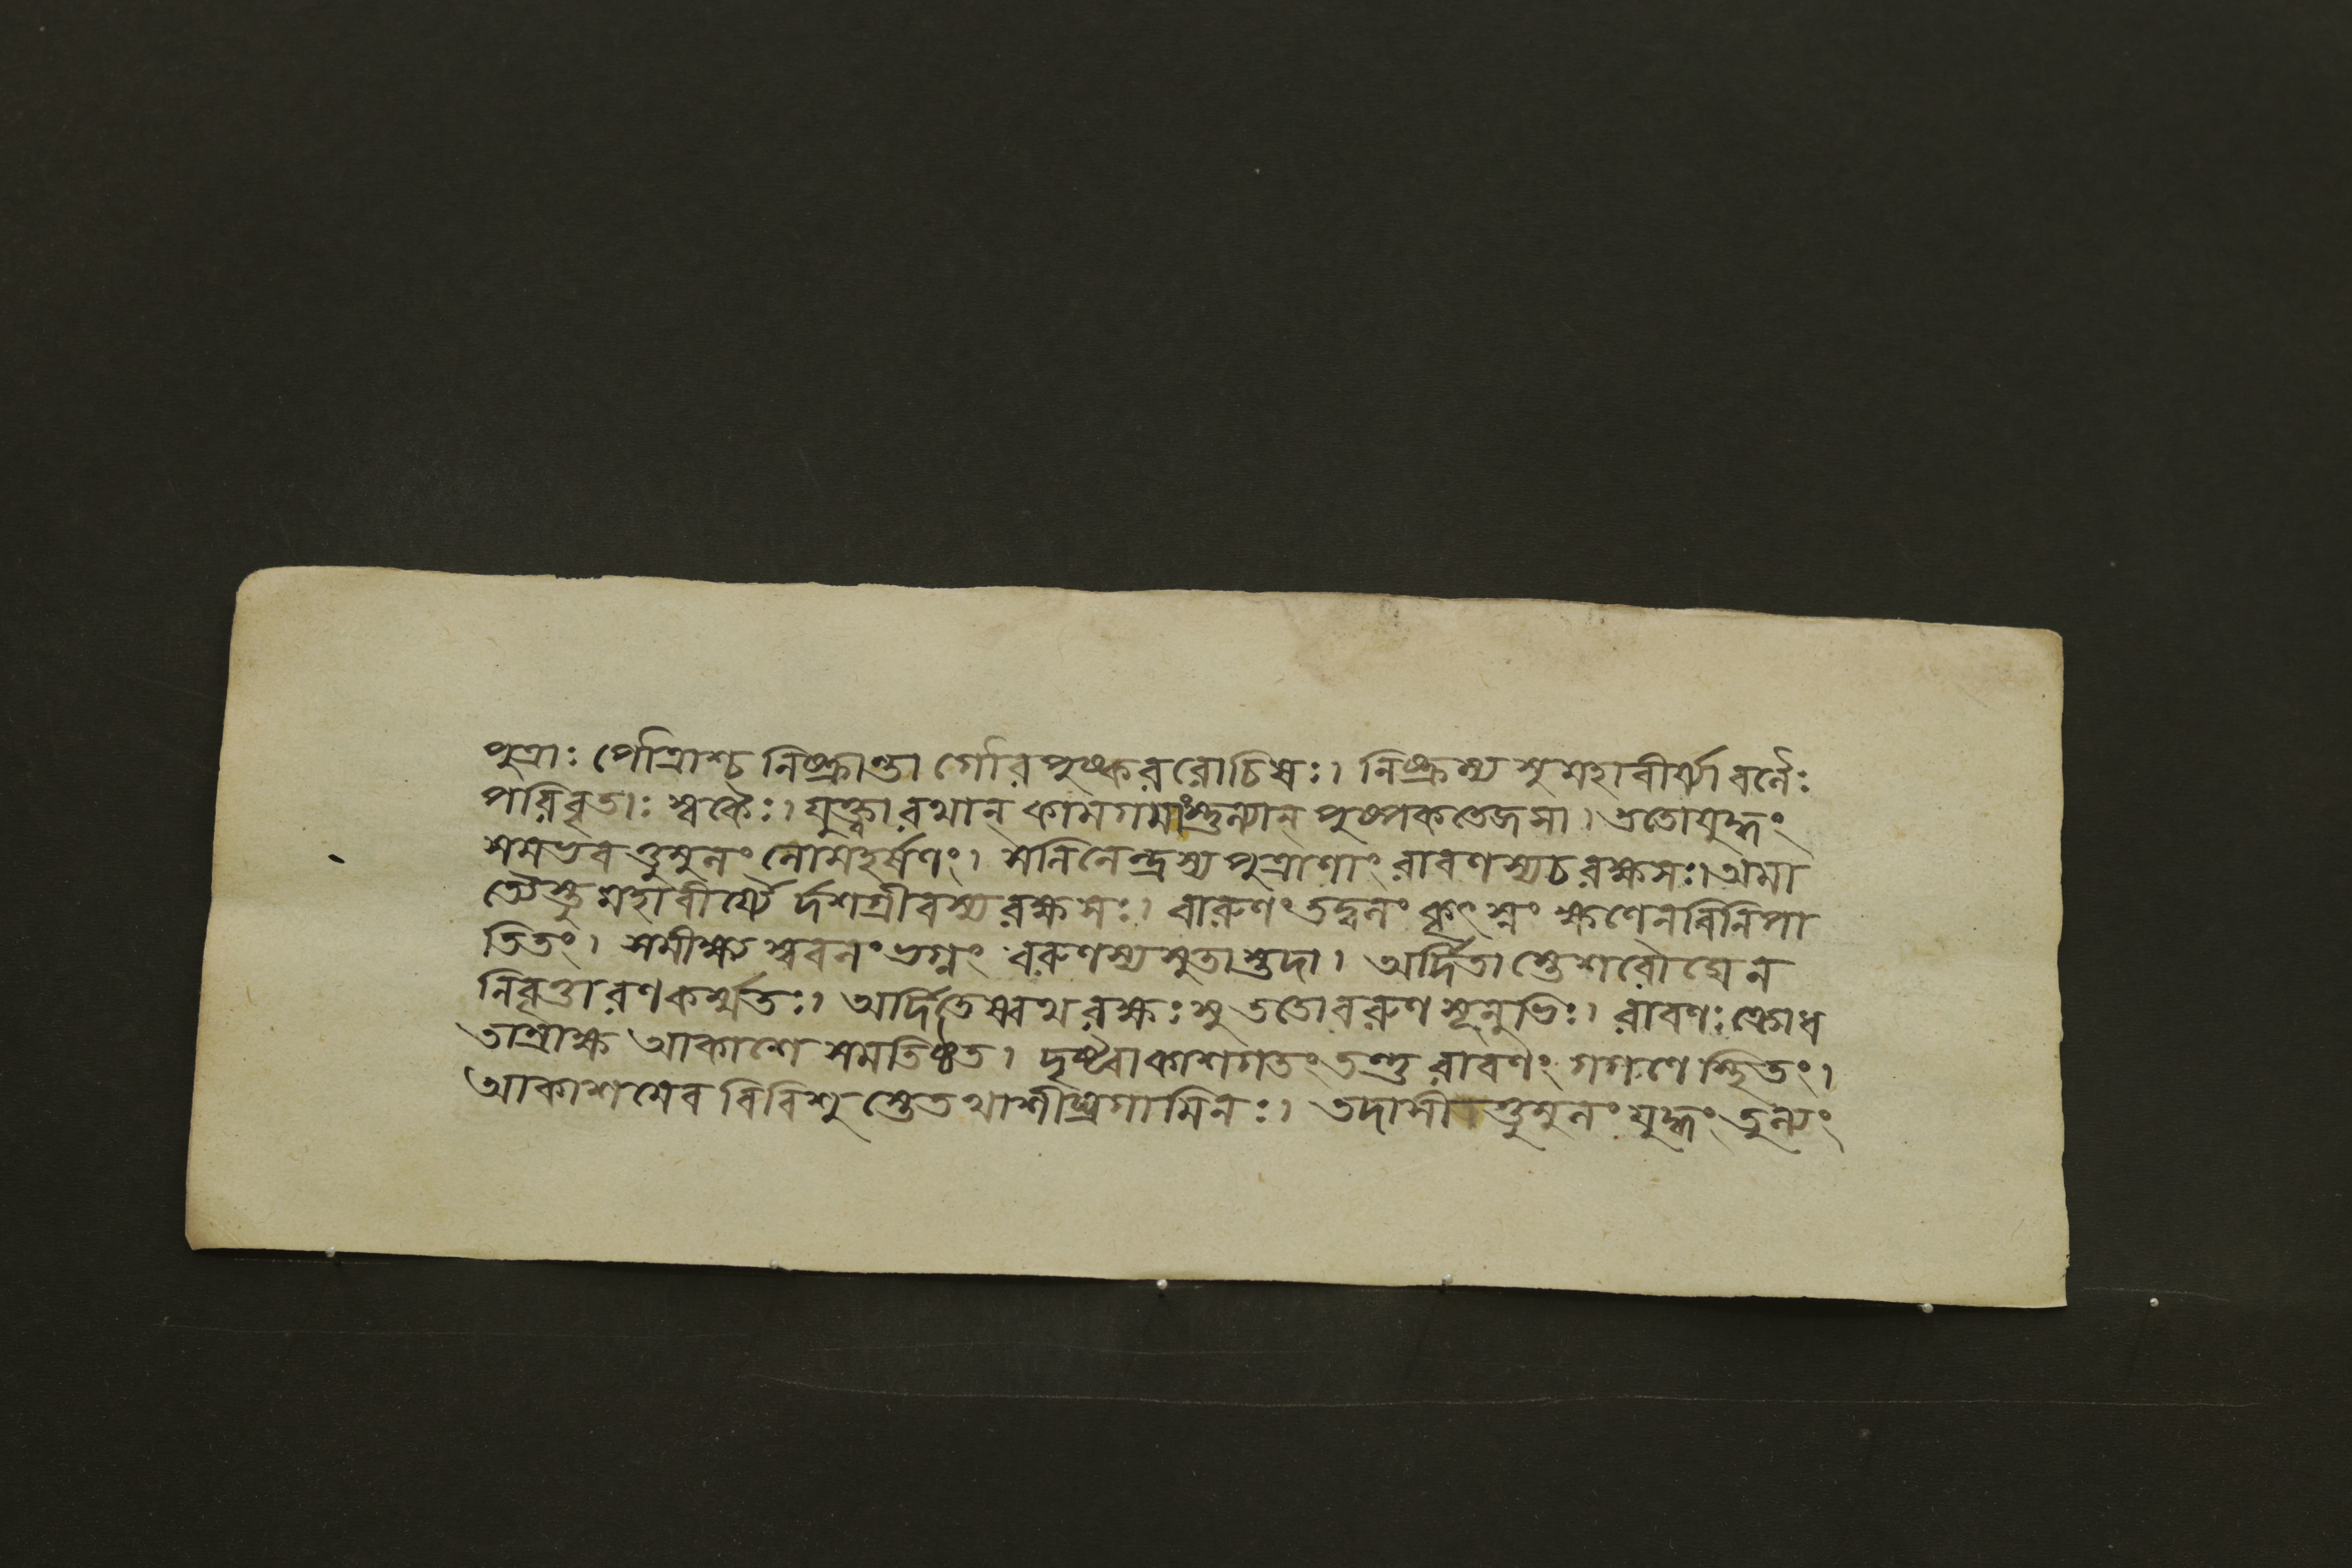 পুত্রাঃ পৌত্রাশ্চ নিষ্ক্রান্তা গৌর পুষ্কররোচিষঃ। নিষ্ক্রম্য সুমহাবীর্য্যা বলৈঃ
পরিবৃতাঃ স্বকৈঃ। যুক্ত্বা রথান্ কামগমাংস্তুল্যান্ পুষ্পকতেজসা। ততোযুদ্ধং
সমভবত্তুমুলং লোমহর্ষণং। সলিলেন্দ্রস্য পুত্রাণাং রাবণস্যচ রক্ষসঃ। অমা
ত্যৈস্তু মহাবীর্য্যৈ র্দশগ্রীবস্য রক্ষসঃ। বারুণং তদ্বলং কৃৎস্নং ক্ষণেন বিনিপা
তিতং। সমীক্ষ্য স্ববলং ভগ্নং বরুণস্য সুতাস্তদা। অর্দিতাস্তেশরৌঘেন
নিবৃত্তা রণকর্ম্মতঃ। অর্দিতেষ্বথ রক্ষঃসু ততোবরুণ সূনুভিঃ। রাবণঃ ক্রোধ
তাম্রাক্ষ আকাশে সমতিষ্ঠত। দৃষ্ট্বাকাশগতং তন্তু রাবণং গগণে স্থিতং।
আকাশমেব বিবিশু স্তেতথাশীঘ্রগামিনঃ। তদাসীত্তুমুলং যুদ্ধং তুল্যং